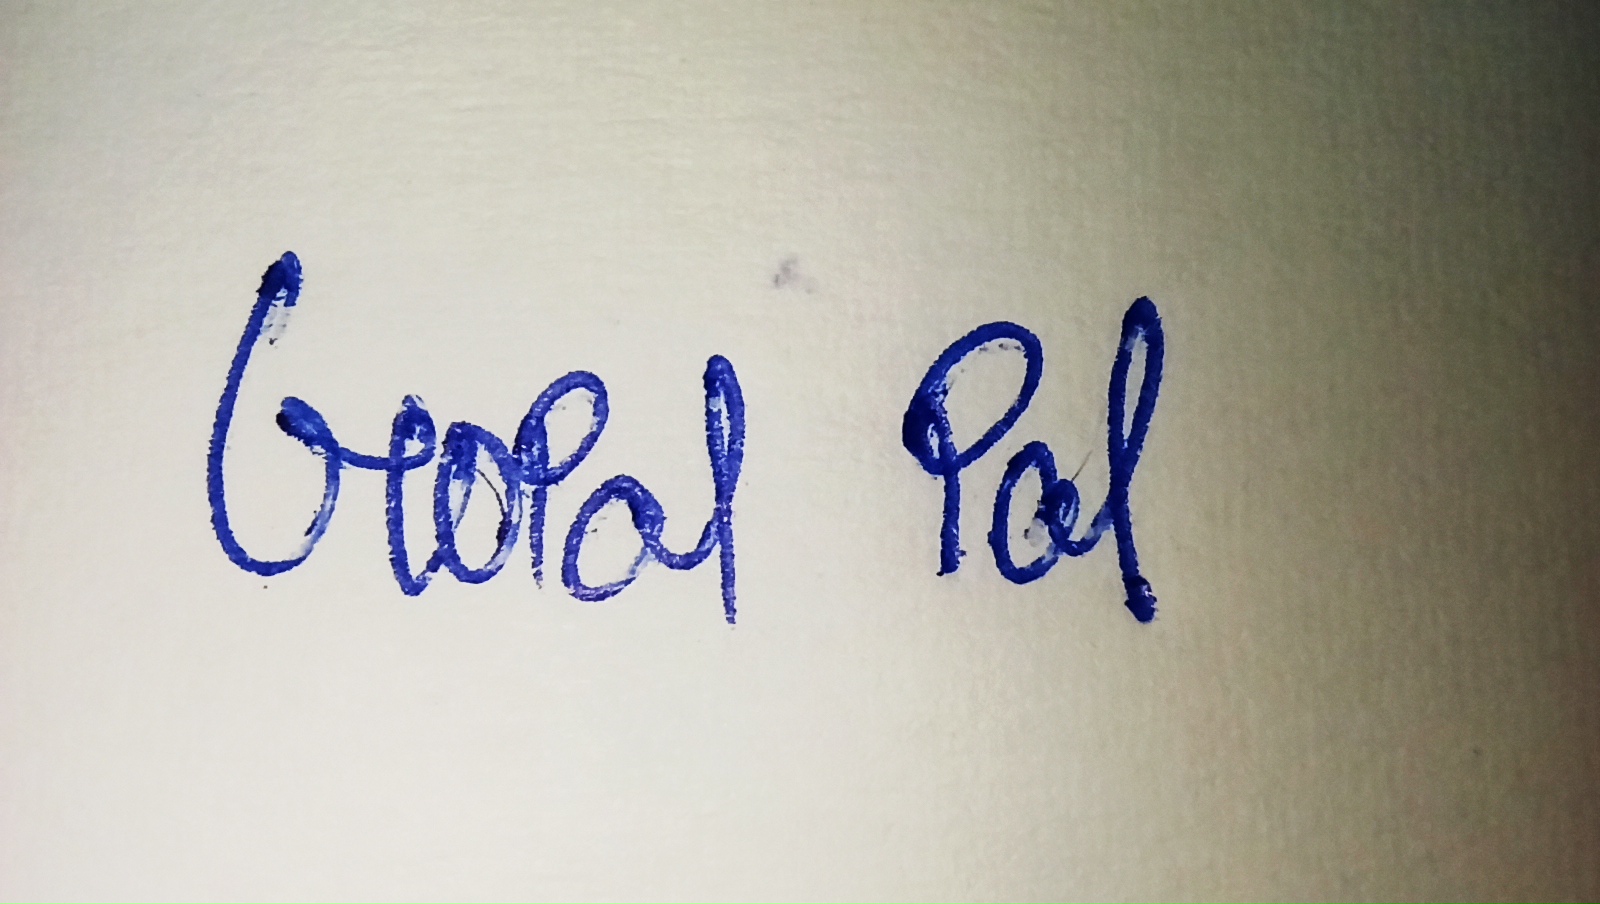 Gopal Pal